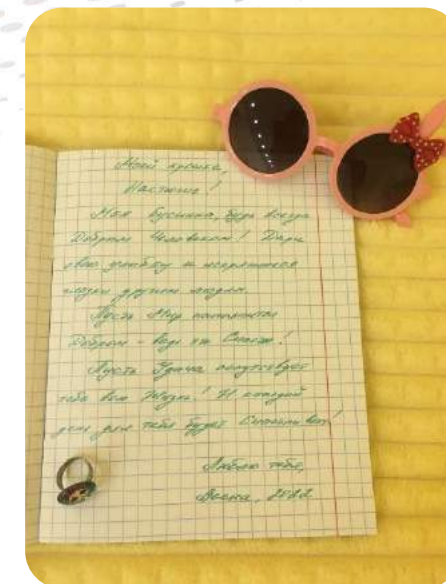 Моей крошке,
Настюше!
Моя бусинка, будь всегда
Добрым Человеком! Дари
свою улыбку и искренность
другим людям.
Пусть Мир наполнится
Добром - ведь он Спасёт!
Пусть Удача сопутствует
тебе всю Жизнь! И каждый
день для тебя будет Счастливым!
Люблю тебя,
Весна, 2022